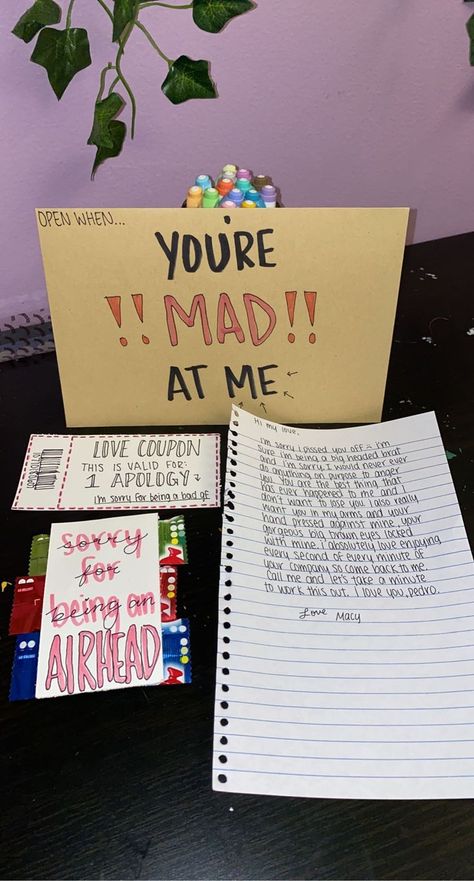 OPEN WHEN...
YOU'RE
!! MAD !!
AT ME
LOVE COUPON
THIS IS VALID FOR:
1 APOLOGY
i'm sorry for being a bad gf.
sorry
for
being an
AIRHEAD
Hi my love,
i'm sorry i pissed you off :( i'm
sure i'm being a big headed brat
and i'm sorry. I would never ever
do anything on purpose to anger
you. You are the best thing that
has ever happened to me and i
don't want to lose you. I also really
want you in my arms and your
hand pressed against mine, your
gorgeous big brown eyes locked
with mine. I absolutely love enjoying
every second of every minute of
your company so come back to me.
Call me and let's take a minute
to work this out. I love you, pedro.
Love Macy